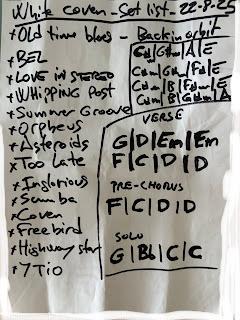 White Coven - Set list - 22-8-25
*Old time blues - Back in orbit
*BEL
*LOVE IN STEREO
*WHIPPING POST
*Summer Groove
*Orpheus
*Asteroids
*Too Late
*Inglorious
*Samba
*Coven
*Freebird
*Highway star
*7Tio
C#m|G#m|A|E
C#m|G#m|F#|E
C#m|B|F#m|E
C#m|B|G#m|A
VERSE
G|D|Em|Em
F|C|D|D
PRE-CHORUS
F|C|D|D
SOLO
G|Bb|C|C